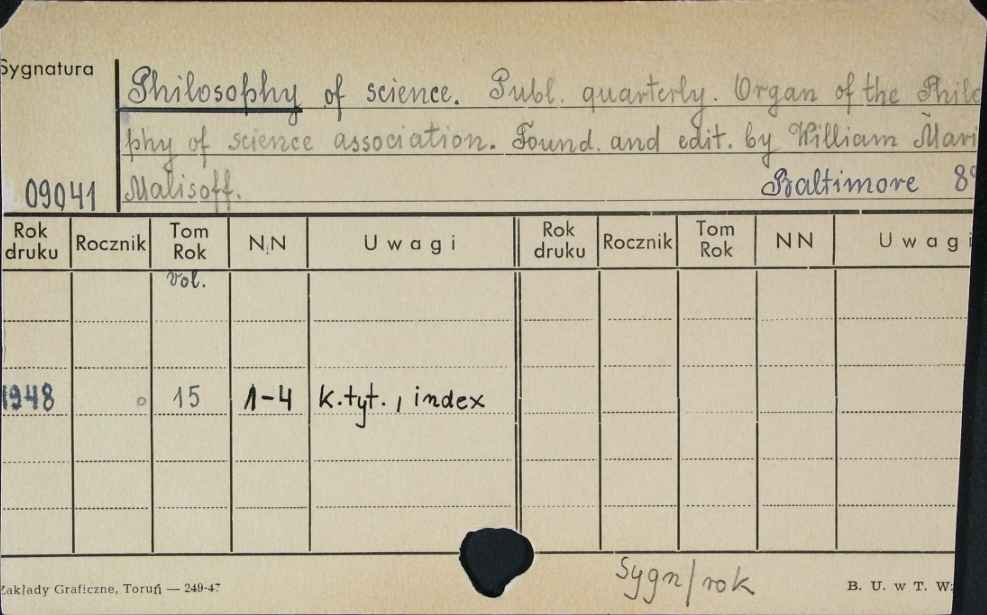 Sygnatura
Philosophy of science. Publ. quarterly. Organ of the Philo
phy of science association. Found. and edit. by William Mari
09041 Malisoff. Baltimore 8°
Rok druku Rocznik Tom Rok NN Uwagi Rok druku Rocznik Tom Rok NN Uwagi
Vol.
1948 15 1-4 k.tyt., index
Sygn/rok
Zakłady Graficzne, Toruń — 249-47 B. U. w T. W